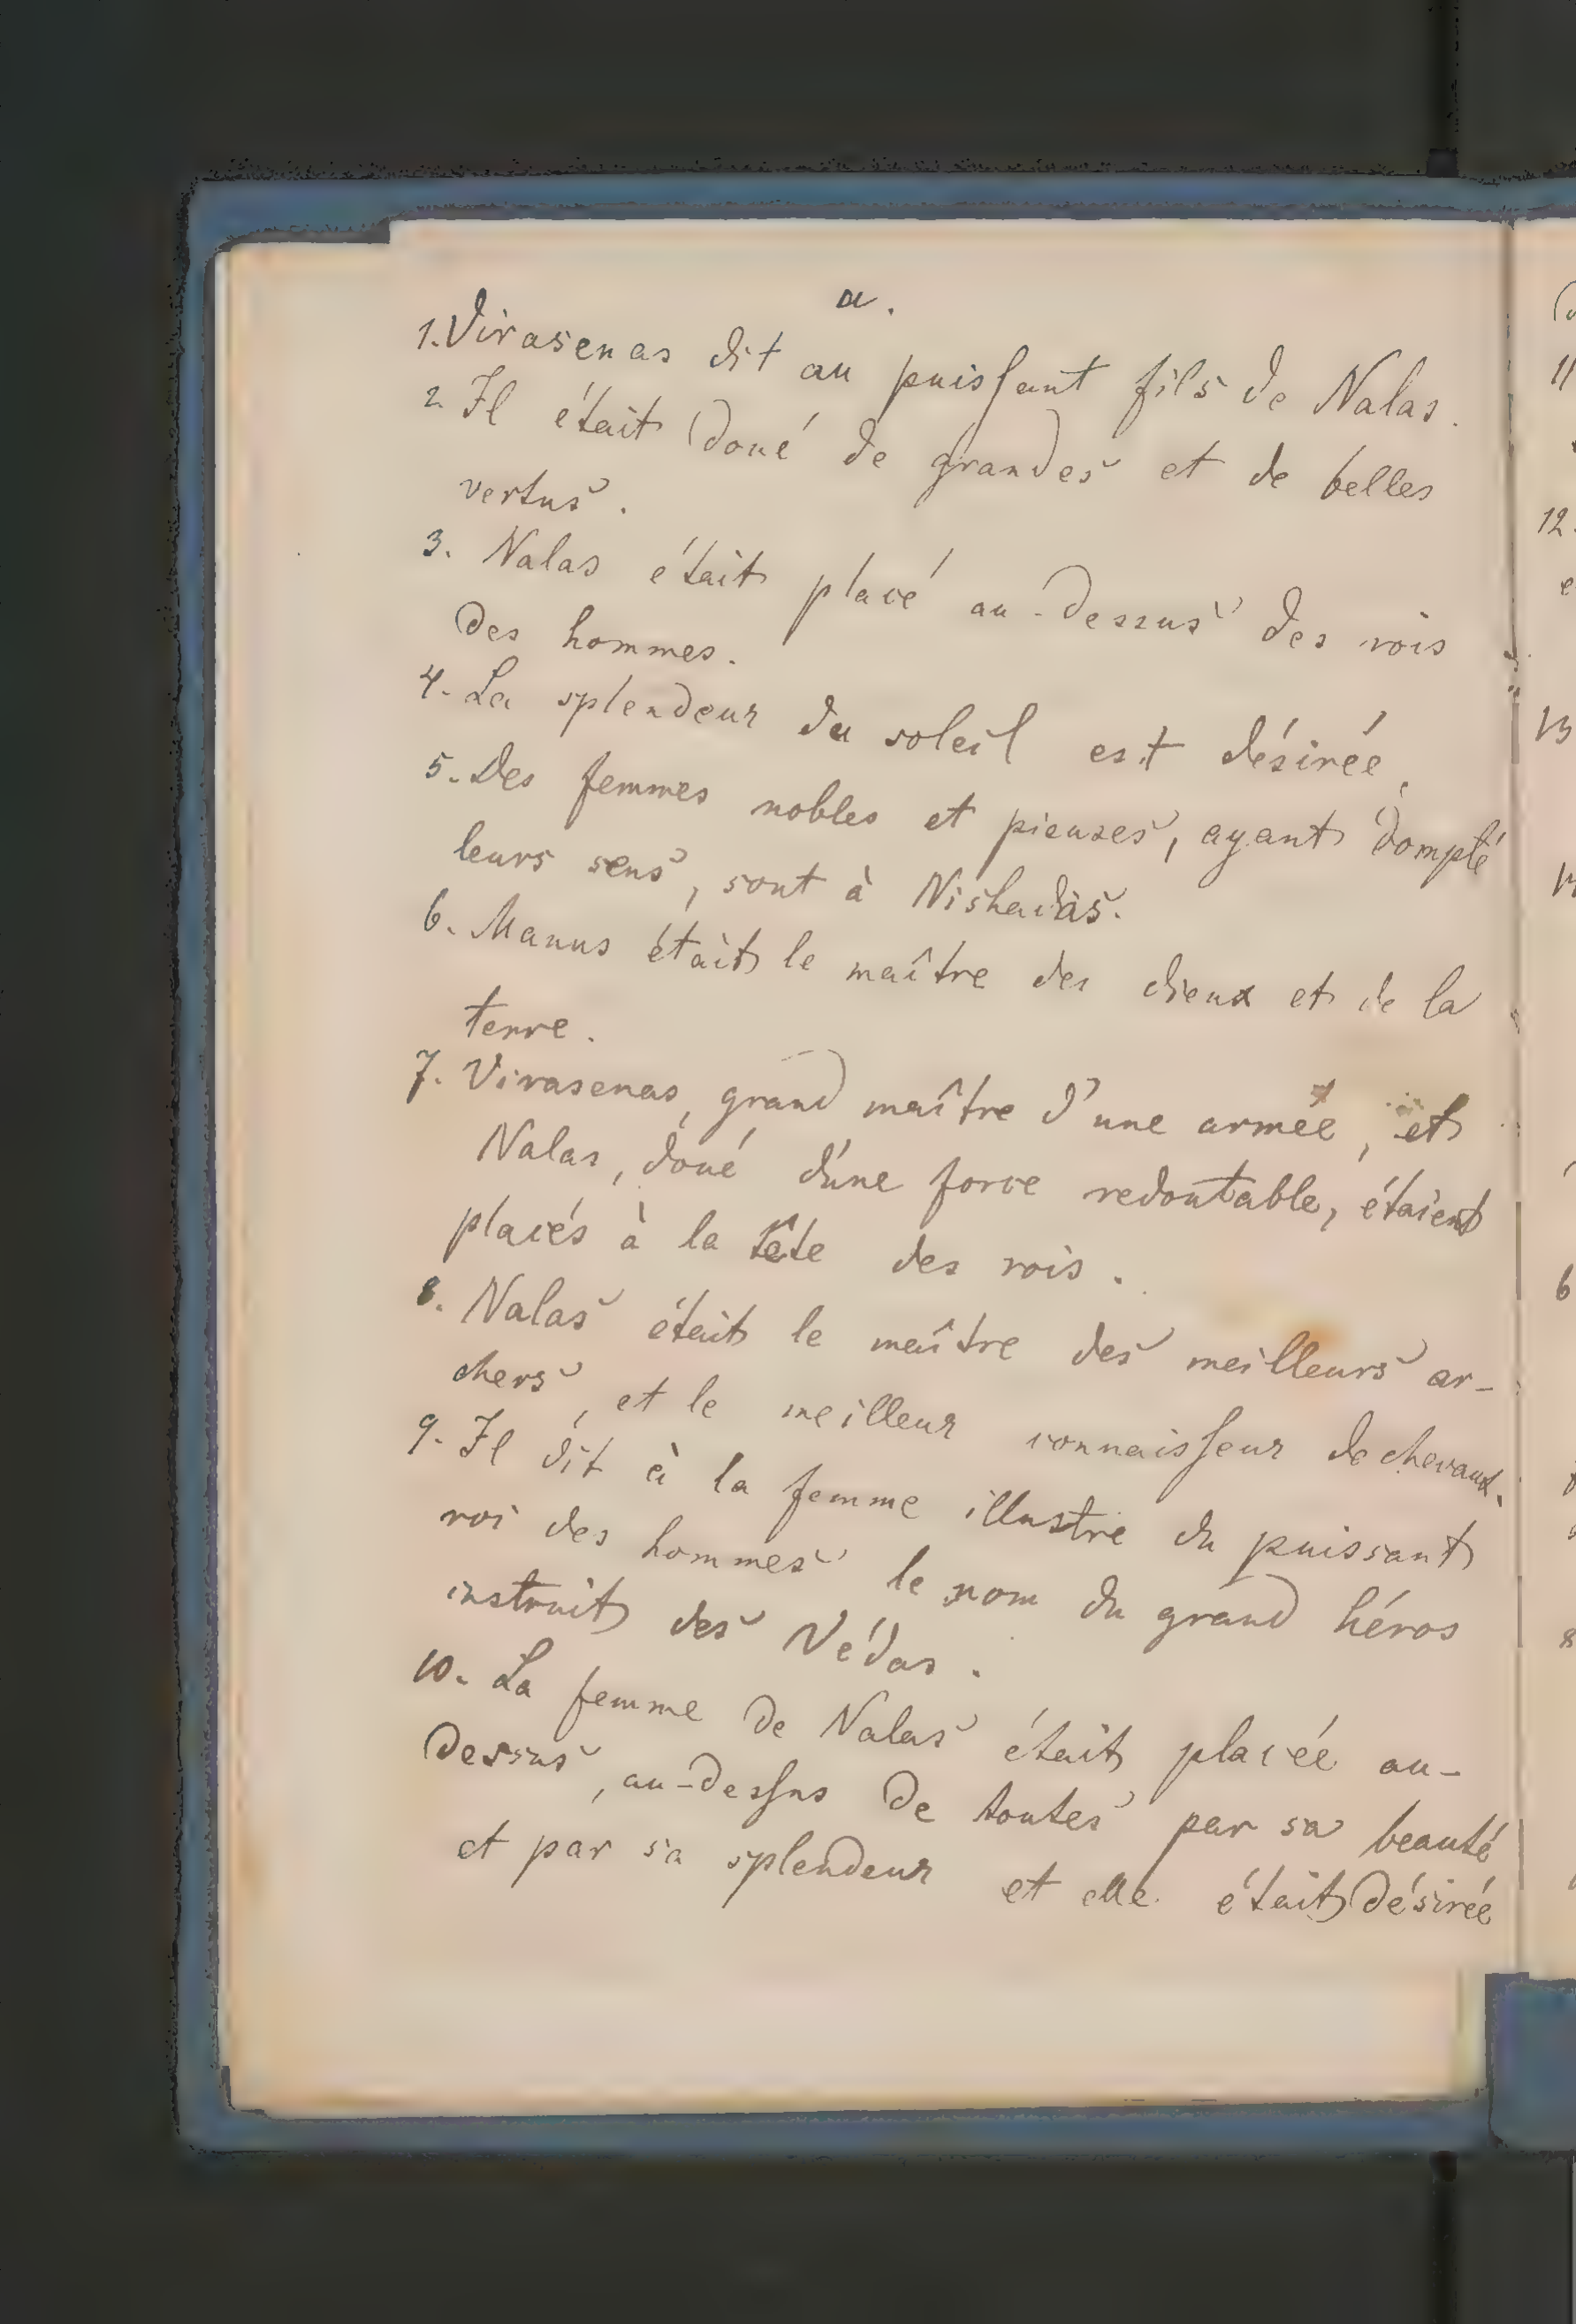 a.
1. Virasenas dit au puissant fils de Nalas.
2. Il était doué de grandes et de belles
vertus.
3. Nalas était placé au-dessus des rois
des hommes.
4. La splendeur du soleil est désirée.
5. Des femmes nobles et pieuses, ayant dompté
leurs sens, sont à Nishadas.
6. Manus était le maître des dieux et de la
terre.
7. Virasenas, grand maître d'une armée, et
Nalas, doué d'une force redoutable, étaient
placés à la tête des rois.
8. Nalas était le maître des meilleurs ar-
chers, et le meilleur connaisseur de chevaux.
9. Il dit à la femme illustre du puissant
roi des hommes le nom du grand héros
instruit des Védas.
10. La femme de Nalas était placée au-
dessus, au-dessus de toutes par sa beauté
et par sa splendeur et elle était désirée
11
12.
13
6
8